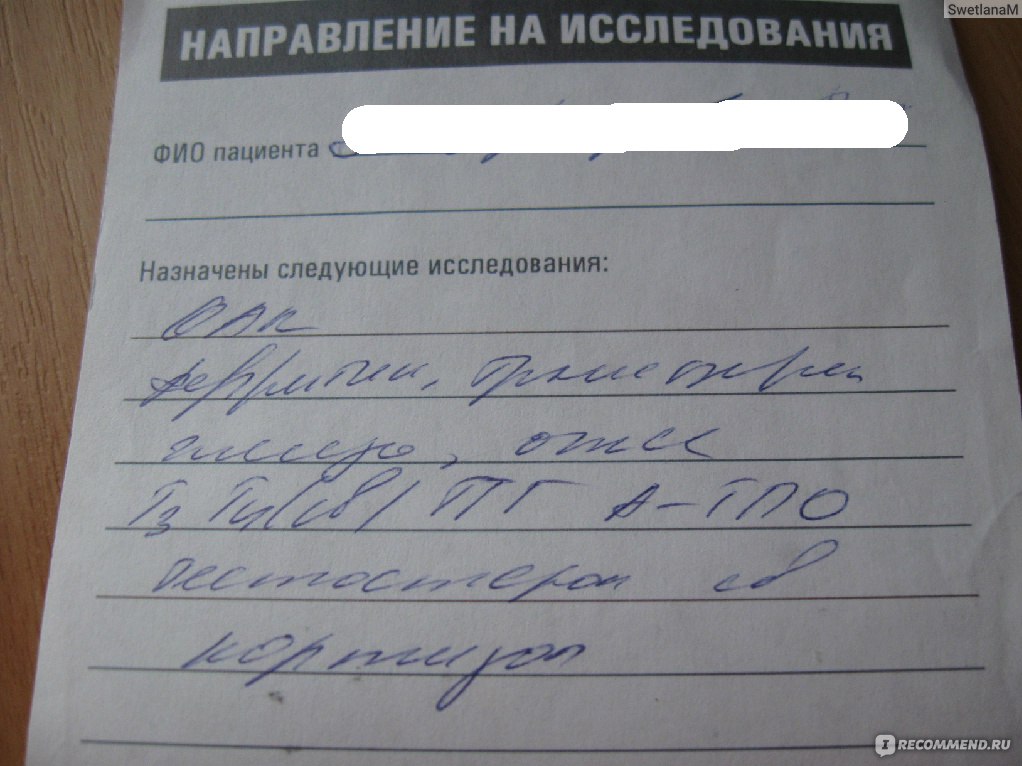 SwetlanaM
НАПРАВЛЕНИЕ НА ИССЛЕДОВАНИЯ
ФИО пациента
Назначены следующие исследования:
ОАК
Ферритин, трансферрин
железо, ОЖСС
Т3 Т4(св) ТТГ А-ТПО
тестостерон св
кортизол
RECOMMEND.RU